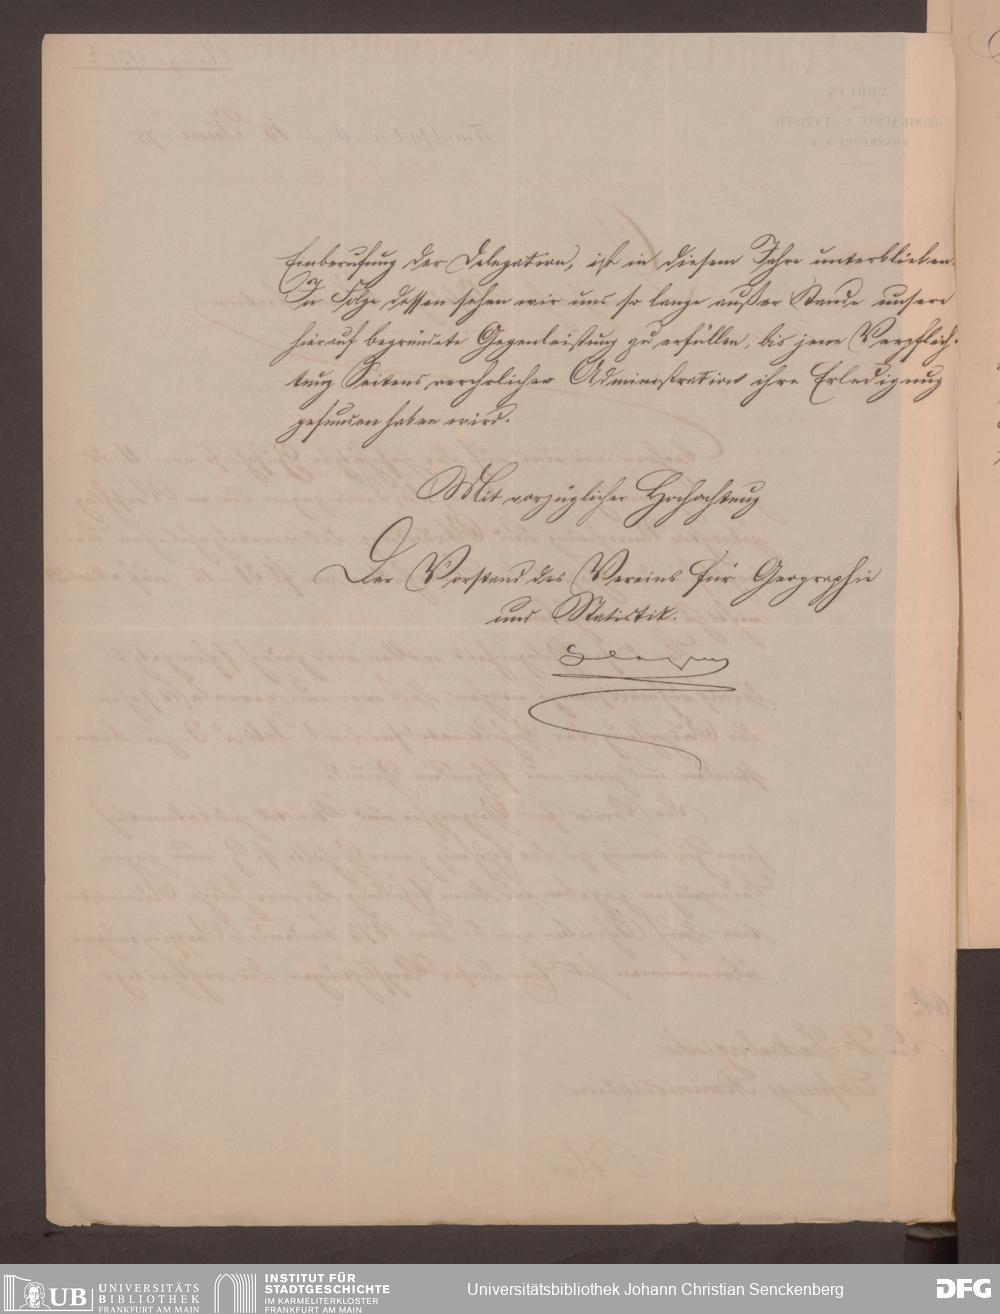 Einberufung der Delegation, ist in diesem Jahre unterblieben.
In Folge dessen sehen wir uns so lange außer Stande unsere
hierauf begründete Gegenleistung zu erfüllen, bis jene Verpflich-
tung Seitens verehrlicher Administration ihre Erledigung
gefunden haben wird.
Mit vorzüglicher Hochachtung
Der Vorstand des Vereins für Geographie
und Statistik.
UB UNIVERSITÄTS
BIBLIOTHEK
FRANKFURT AM MAIN
INSTITUT FÜR
STADTGESCHICHTE
IM KARMELITERKLOSTER
FRANKFURT AM MAIN
Universitätsbibliothek Johann Christian Senckenberg
DFG